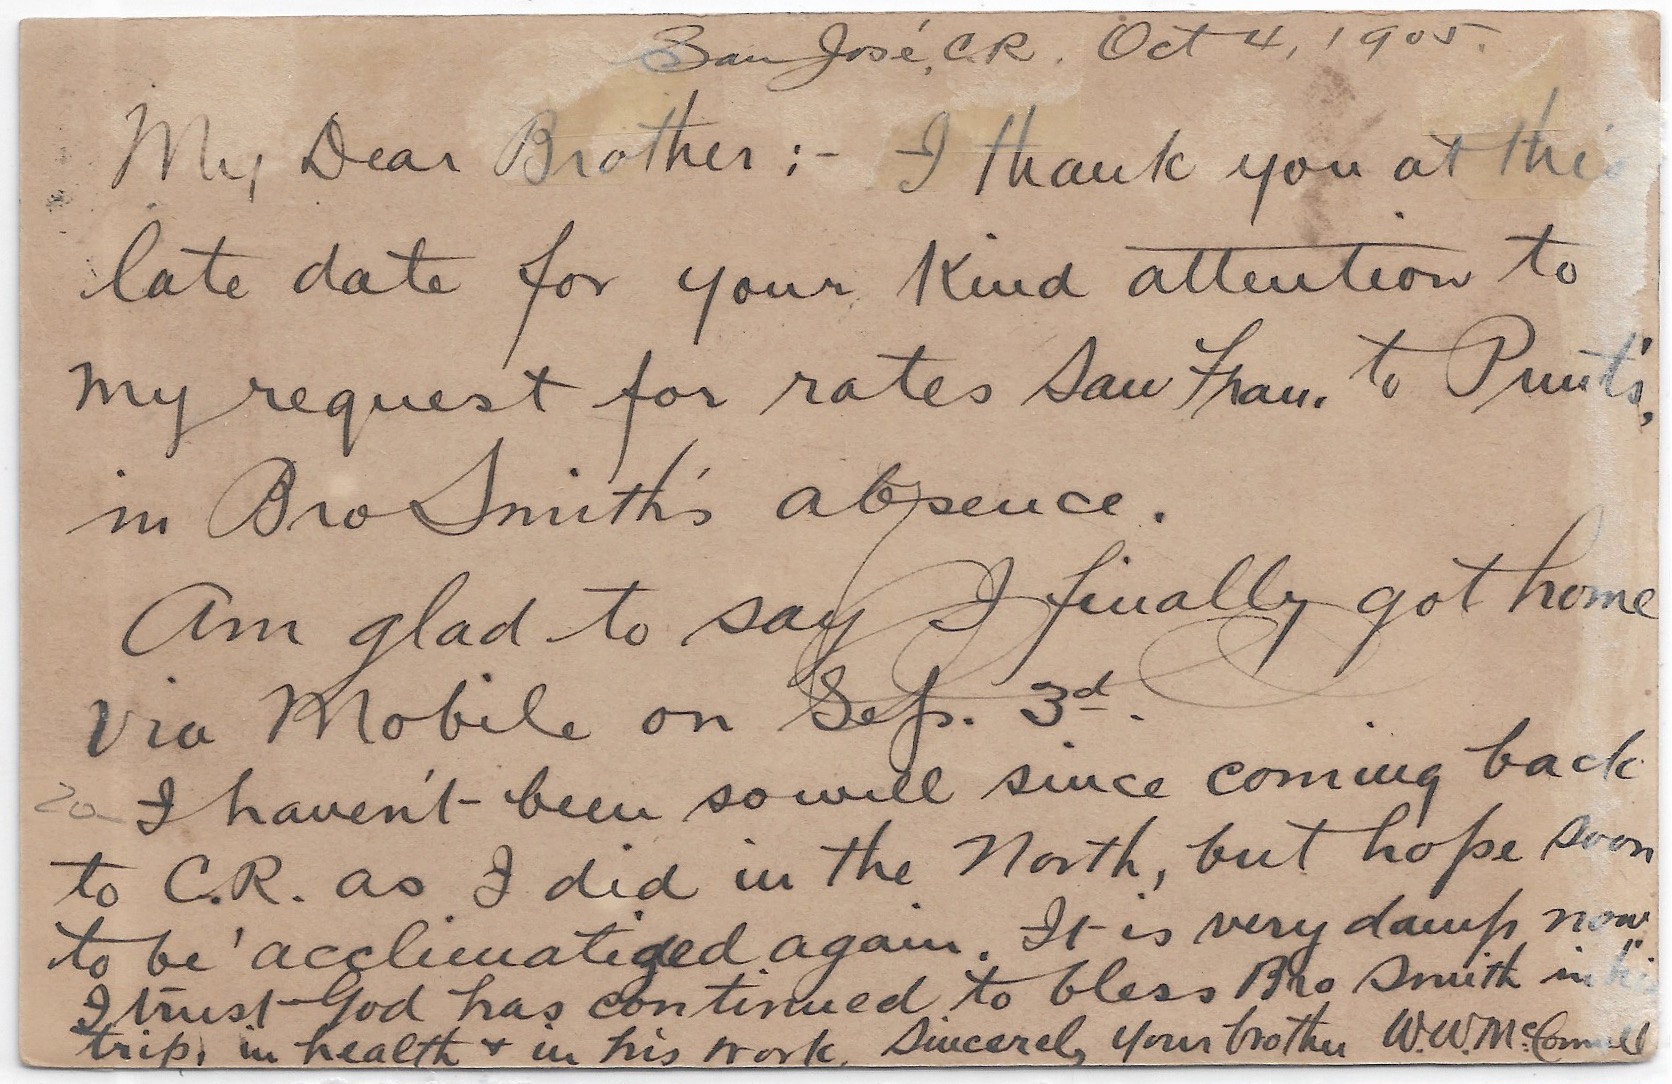 San José, C.R. Oct 4, 1905.
My Dear Brother :- I thank you at this
late date for your kind attention to
my request for rates San Fran. to Punt's,
in Bro Smith's absence.
Am glad to say I finally got home
via Mobile on Sep. 3d.
20 I haven't been so well since coming back
to C.R. as I did in the North, but hope soon
to be acclimatized again. It is very damp now
I trust God has continued to bless Bro Smith in his
trip, in health + in his work. Sincerely your brother W.W. McConnell